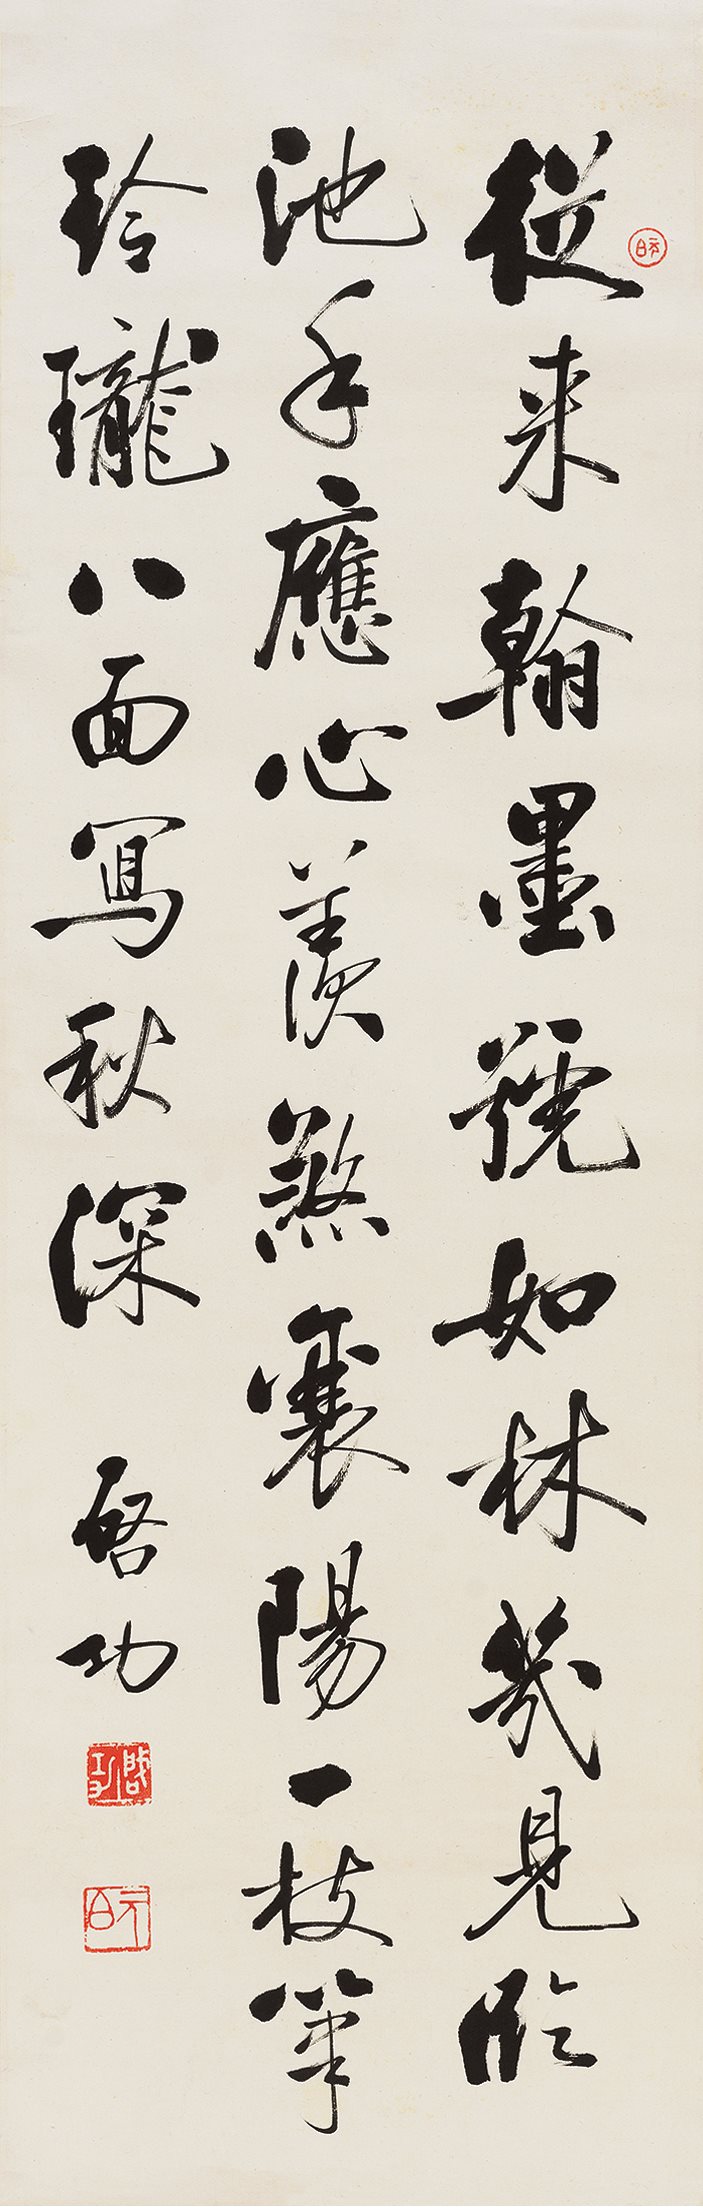 從来翰墨號如林幾見臨
池手應心羨煞襄陽一枝筆
玲瓏八面寫秋深
啓功
啓功
元白
元白